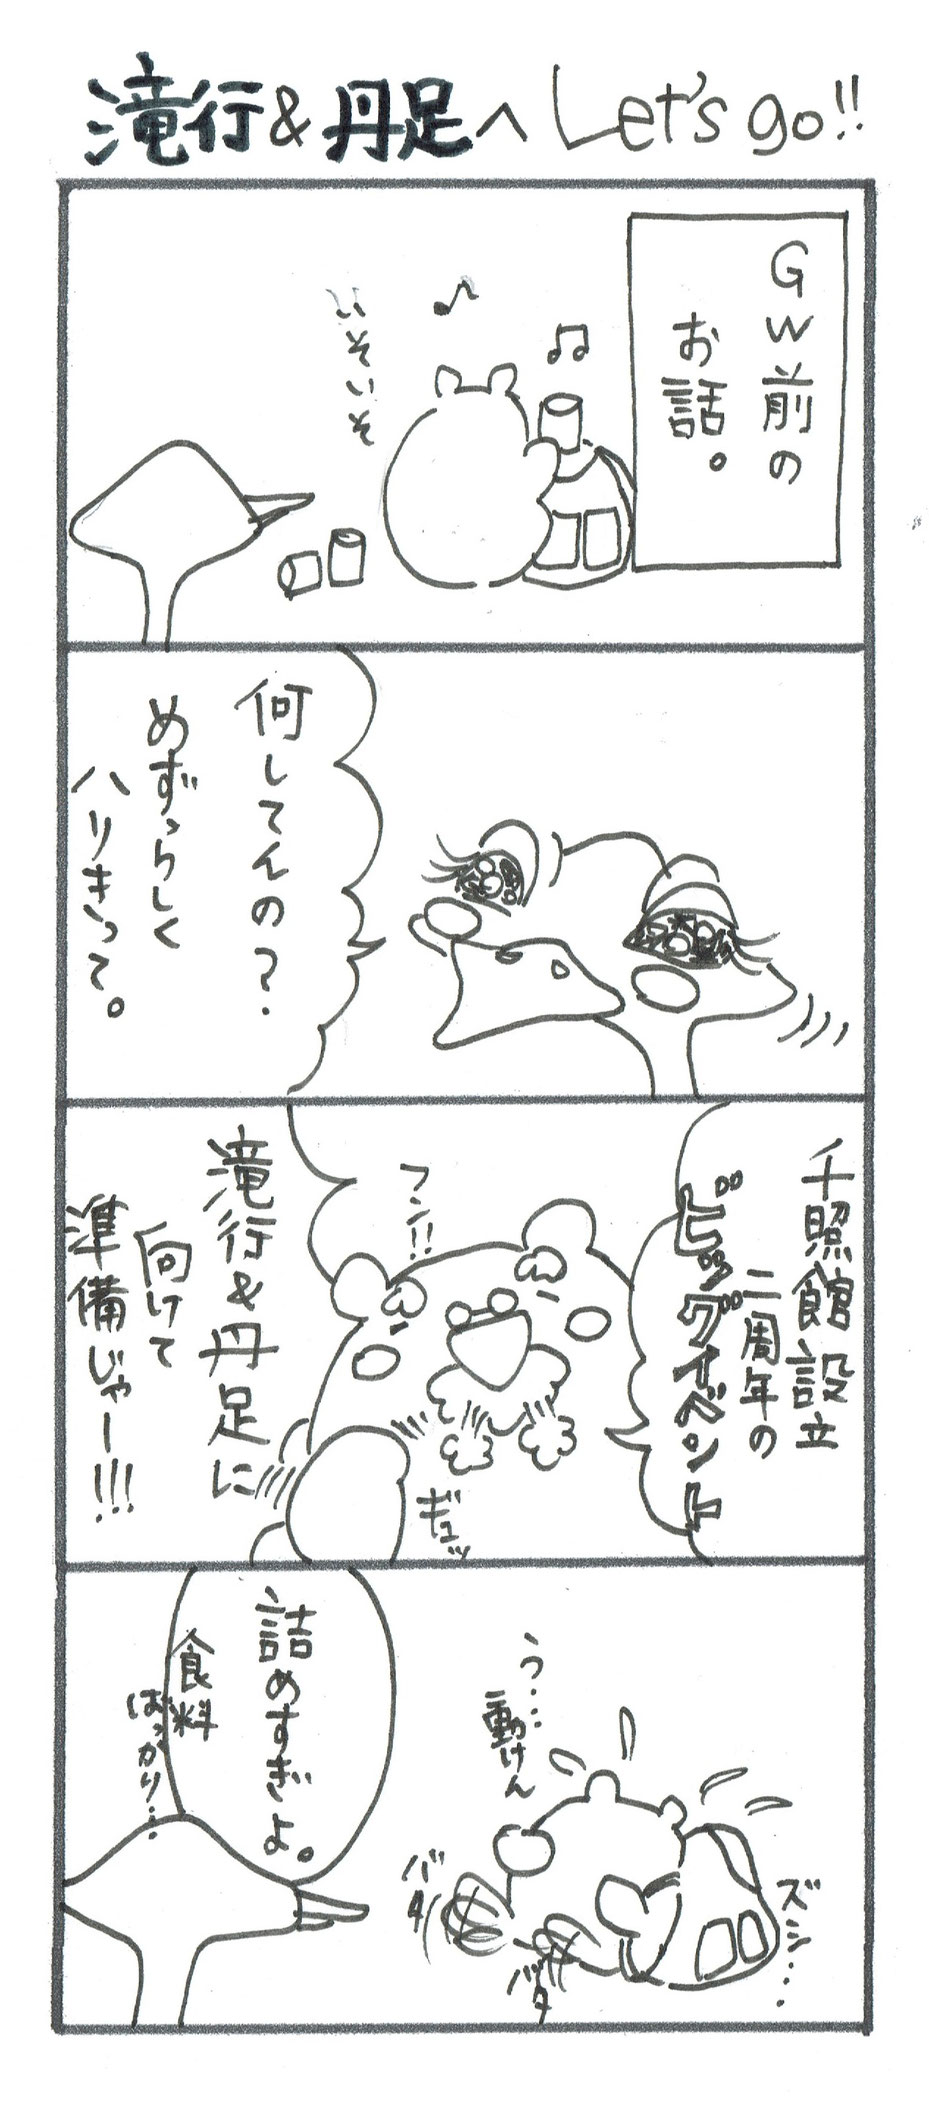 滝行&丹足へLet's go!!
GW前の
お話。
いそいそ
何してんの?
めずらしく
ハリきって。
千照館設立
二周年の
ビッグイベント
フン!!
ギュッ
滝行&丹足に
向けて
準備じゃー!!!
う……
動けん
ズシ……
バタ
バタ
詰めすぎよ。
食料
ばっかり…